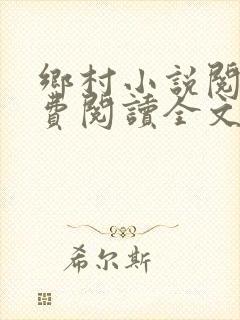 鄉村小說閱
費閱讀全文
希尔斯